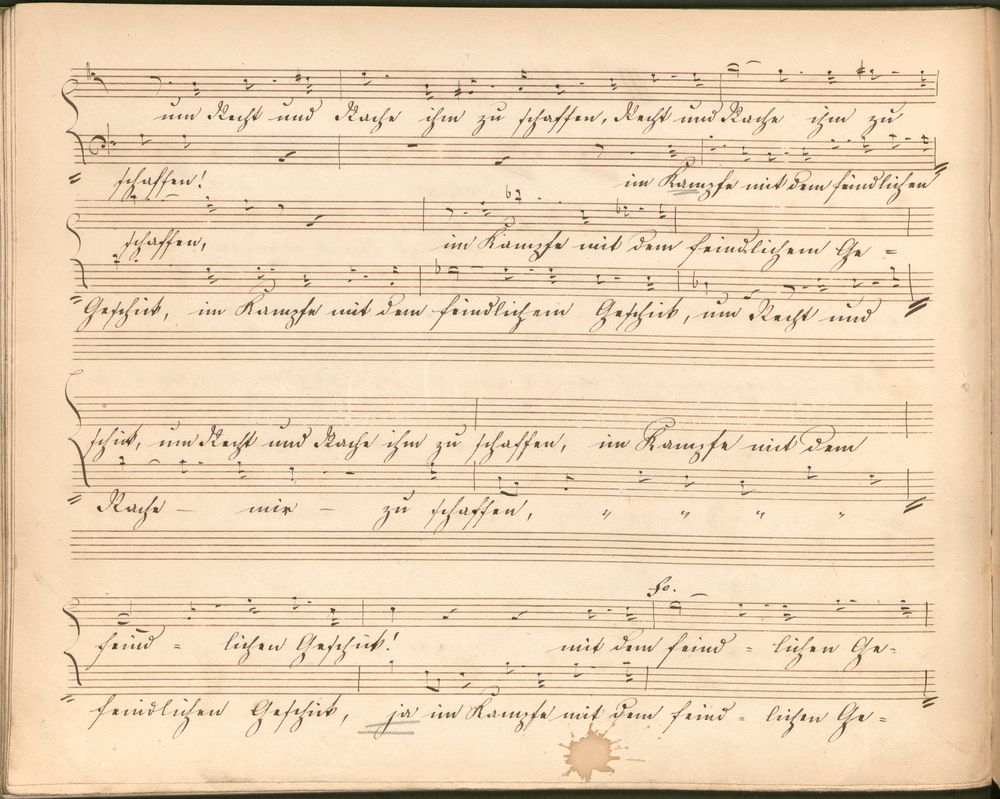 um Recht und Rache ihm zu schaffen, Recht und Rache ihm zu
schaffen! im Kampfe mit dem feindlichen
schaffen, im Kampfe mit dem feindlichem Ge =
Geschick, im Kampfe mit dem feindlichem Geschick, um Recht und
schick, um Recht und Rache ihm zu schaffen, im Kampfe mit dem
Rache – mir – zu schaffen, " " " "
fo.
feind = lichen Geschick! mit dem feind = lichen Ge-
feindlichen Geschick, ja im Kampfe mit dem feind = lichen Ge =